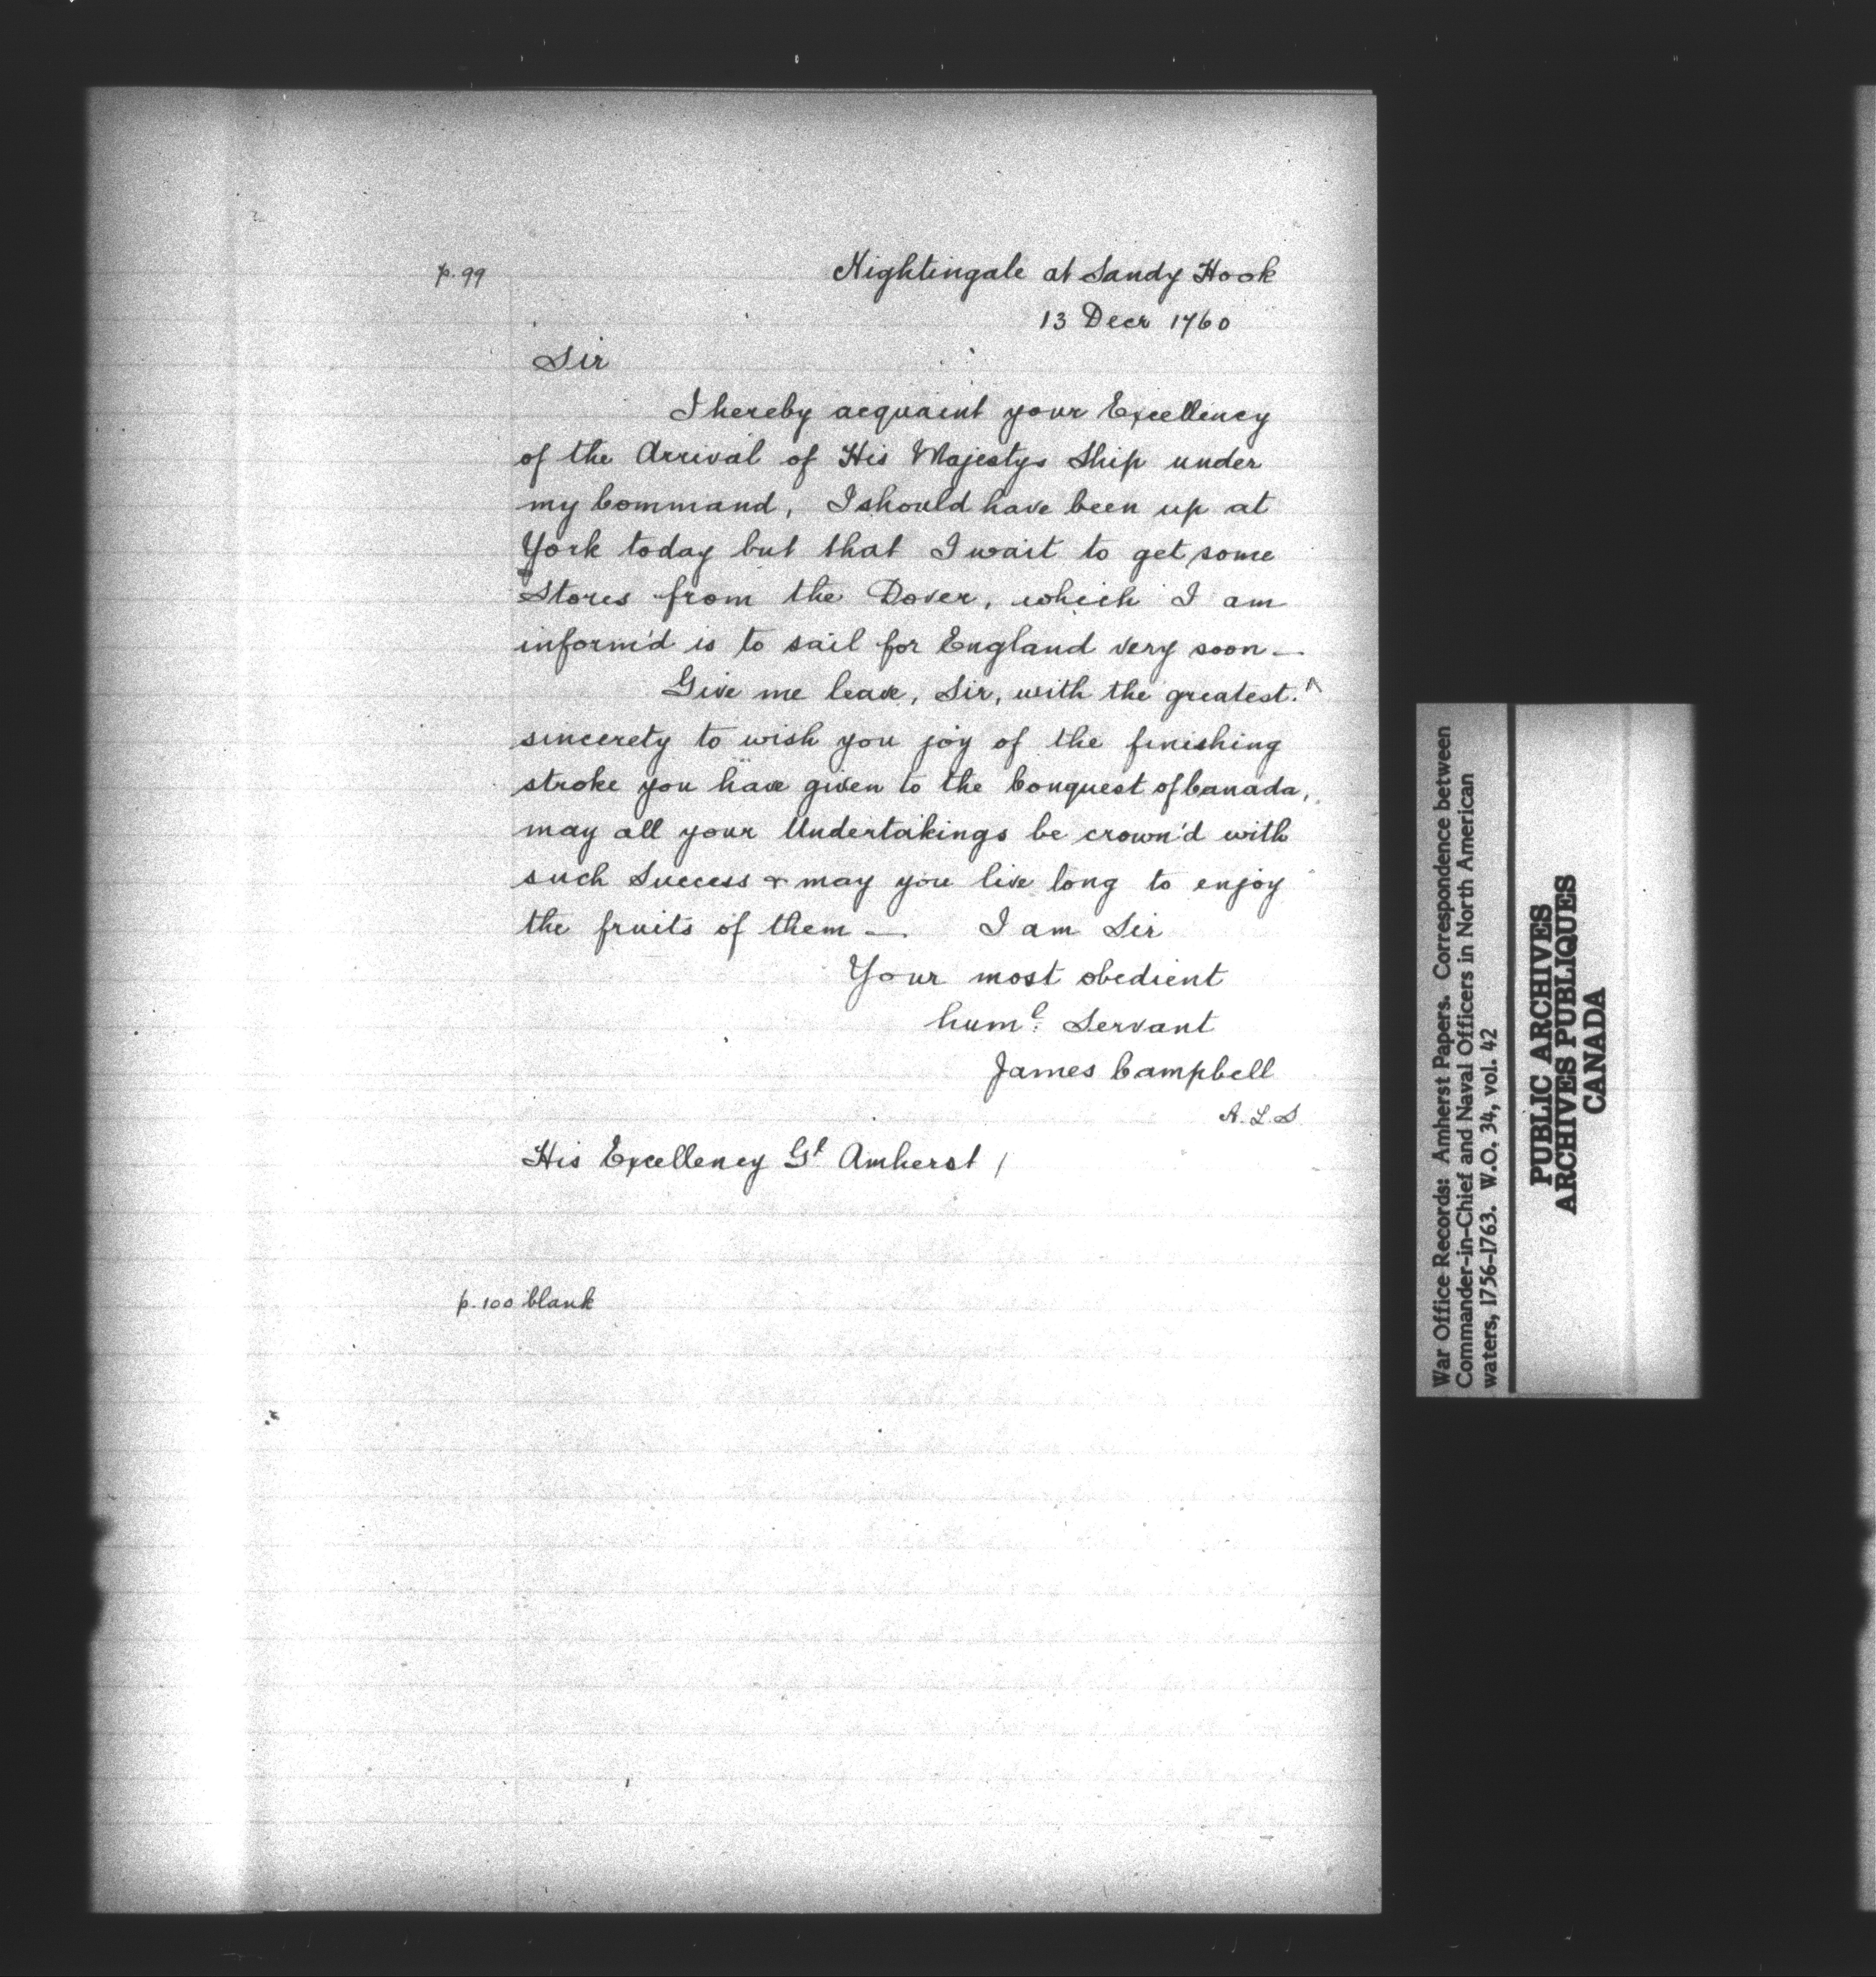 p. 99
Nightingale at Sandy Hook
13 Decr 1760
Sir
I hereby acquaint your Excellency
of the Arrival of His Majestys Ship under
my Command, I should have been up at
York today but that I wait to get some
Stores from the Dover, which I am
inform'd is to sail for England very soon —
Give me leave, Sir, with the greatest
sincerety to wish you joy of the finishing
stroke you have given to the Conquest of Canada,
may all your Undertakings be crown'd with
such Success & may you live long to enjoy
the fruits of them — I am Sir
Your most obedient
huml: Servant
James Campbell
A.L.S
His Excellency Gl Amherst /
p. 100 blank
War Office Records: Amherst Papers. Correspondence between
Commander-in-Chief and Naval Officers in North American
waters, 1756-1763. W.O. 34, vol. 42
PUBLIC ARCHIVES
ARCHIVES PUBLIQUES
CANADA